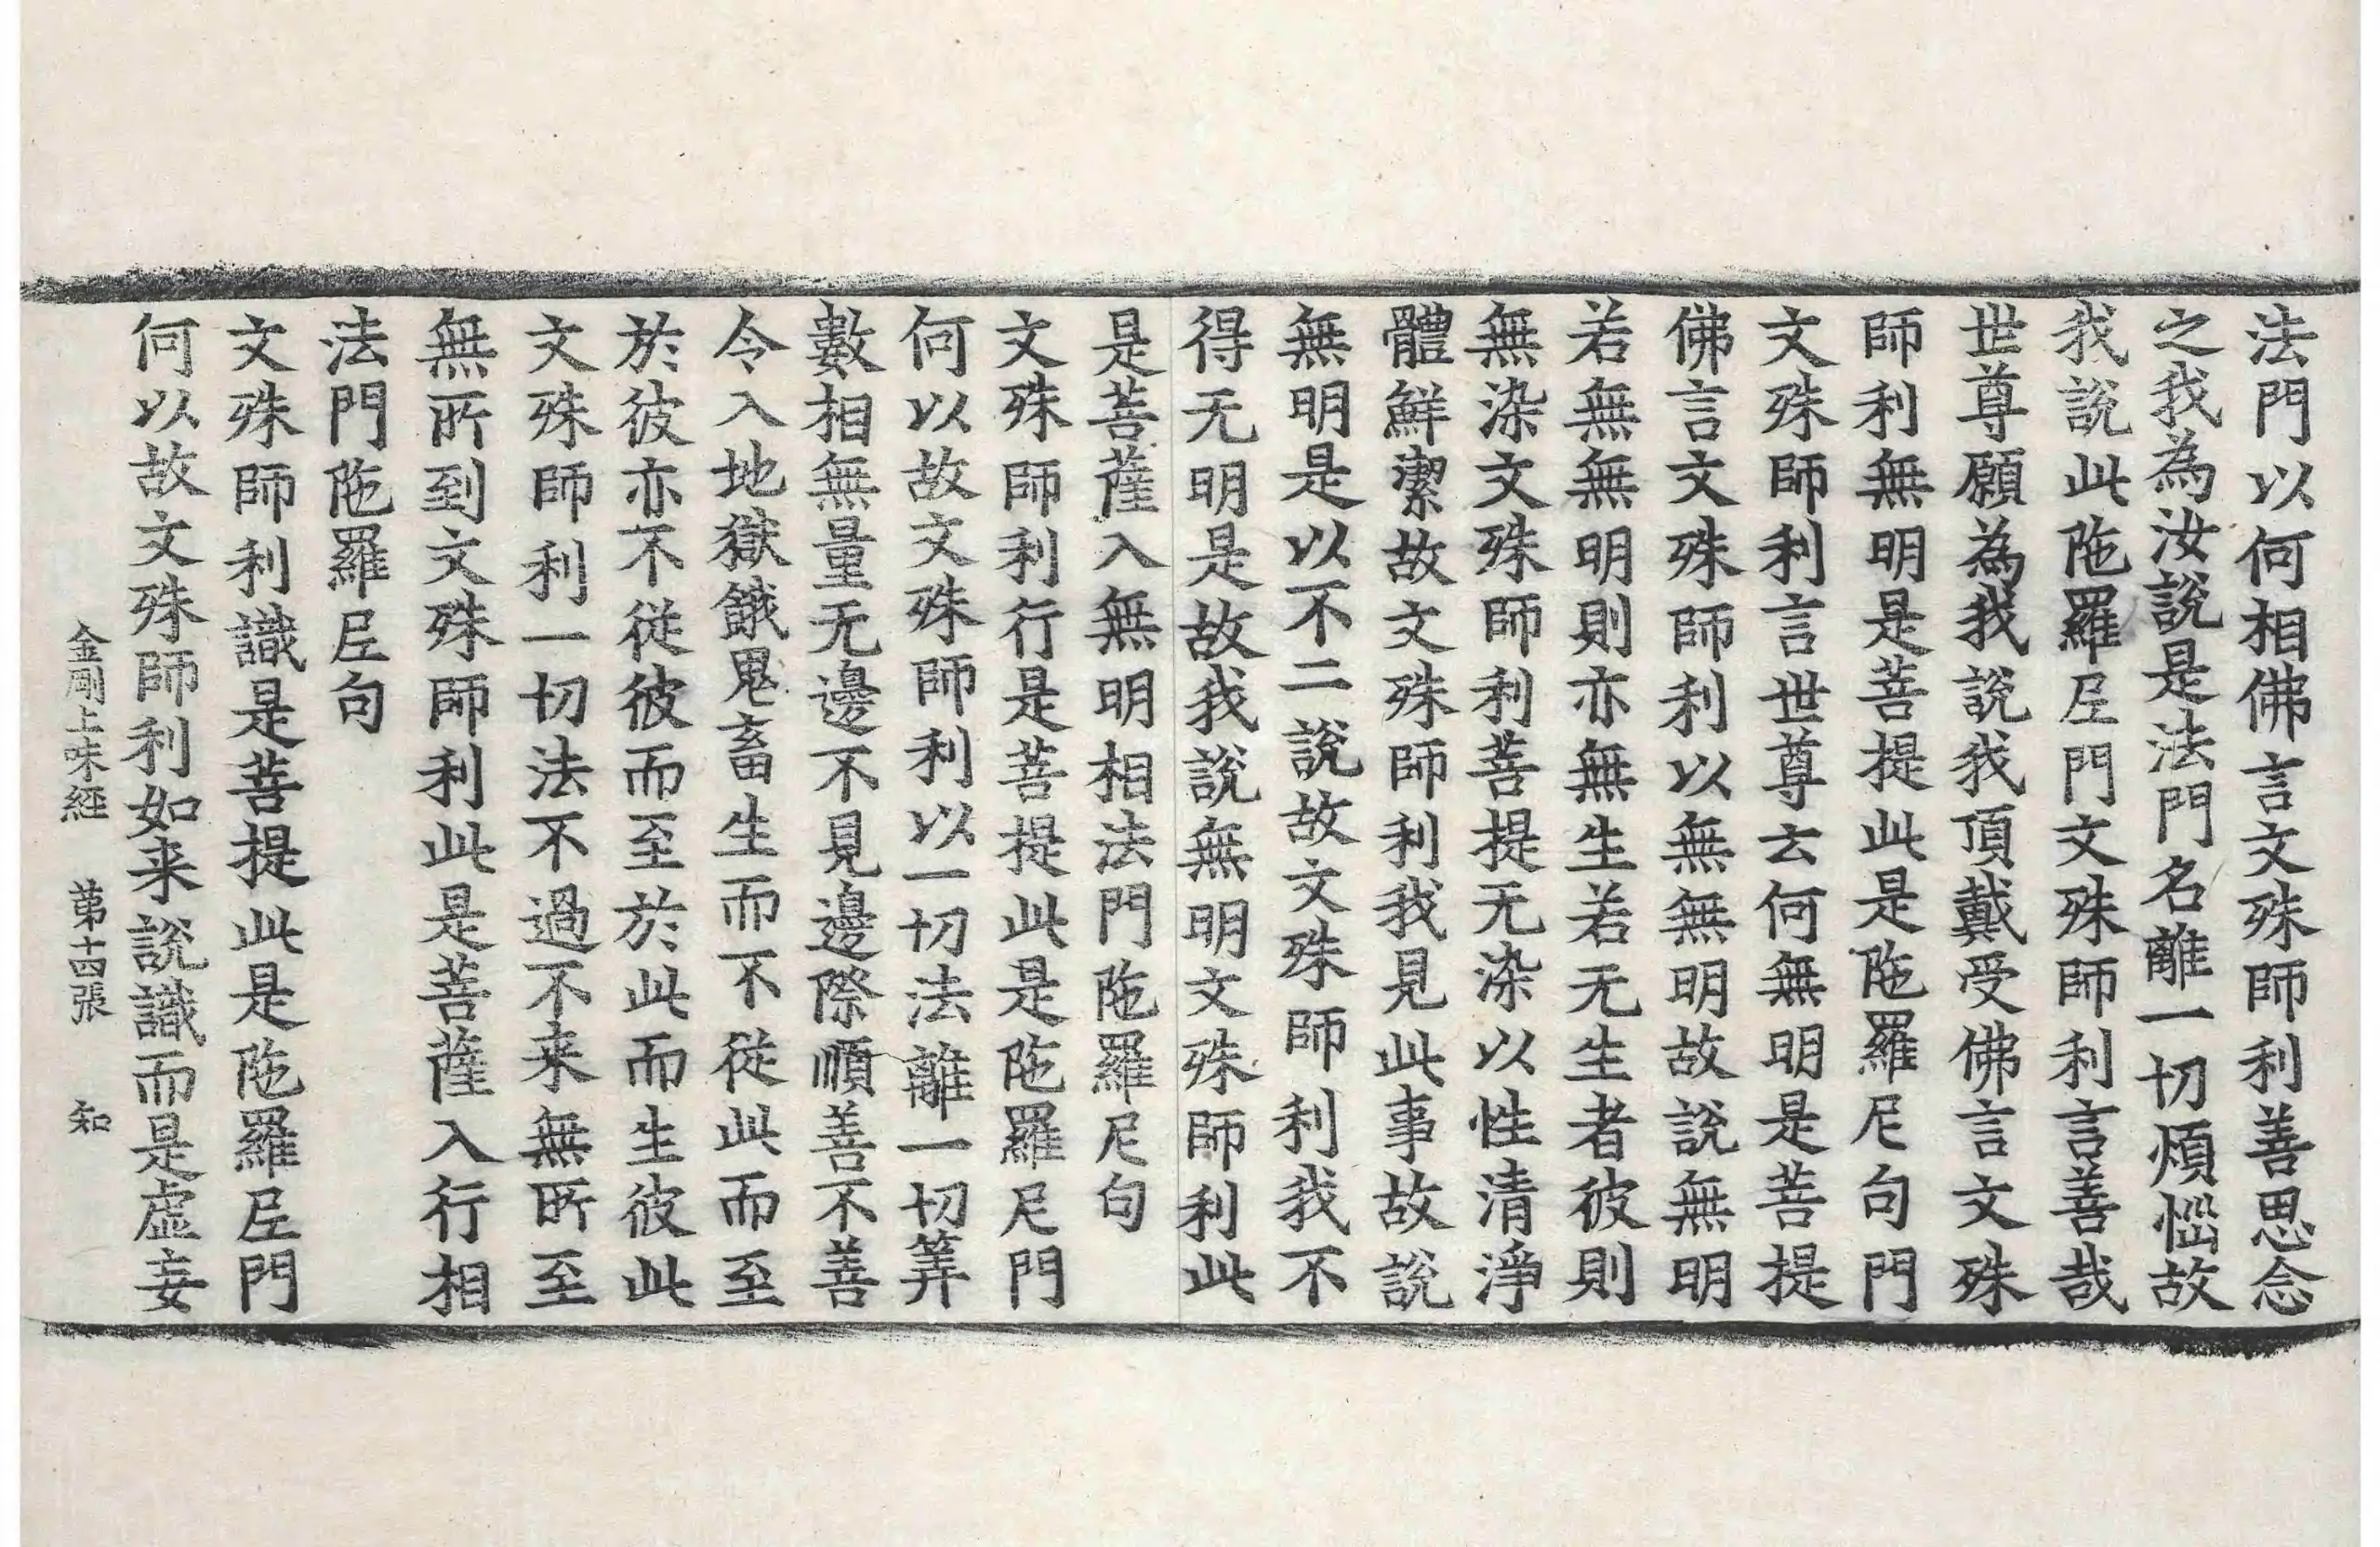 法門以何相佛言文殊師利善思念
之我為汝說是法門名離一切煩惱故
我說此陁羅𡰱門文殊師利言善哉
世尊願為我說我頂戴受佛言文殊
師利無明是菩提此是陁羅尼句門
文殊師利言世尊云何無明是菩提
佛言文殊師利以無無明故說無明
若無無明則亦無生若无生者彼則
無染文殊師利菩提无染以性清淨
體鮮潔故文殊師利我見此事故說
無明是以不二說故文殊師利我不
得无明是故我說無明文殊師利此
是菩薩入無明相法門陁羅尼句
文殊師利行是菩提此是陁羅尼門
何以故文殊師利以一切法離一切筭
數相無量无邊不見邊際順善不善
令入地獄餓鬼畜生而不從此而至
於彼亦不從彼而至於此而生彼此
文殊師利一切法不過不来無所至
無所到文殊師利此是菩薩入行相
法門陁羅𡰱句
文殊師利識是菩提此是陁羅𡰱門
何以故文殊師利如来說識而是虛妄
金剛上味經 第十四張 知